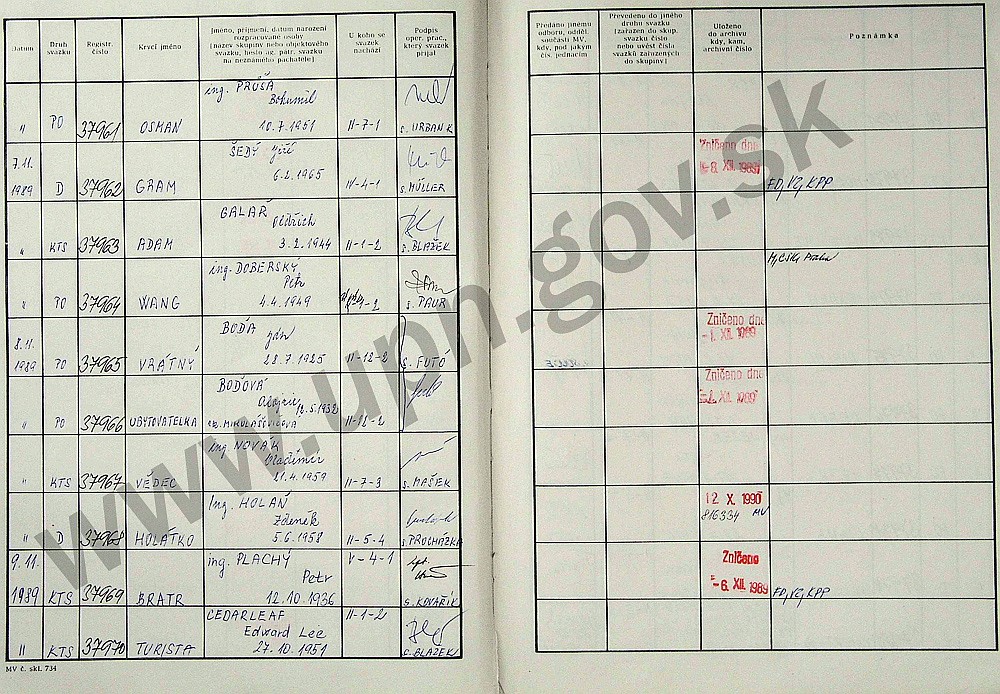 Datum
Druh svazku
Registr. číslo
Krycí jméno
Jméno, příjmení, datum narození
rozpracované osoby
(název skupiny nebo objektového
svazku, heslo ag. pátr. svazku
na neznámého pachatele)
U koho se
svazek
nachází
Podpis
oper. prac.,
který svazek
přijal
Předáno jinému
odboru, odděl.
součásti MV,
kdy, pod jakým
čís. jednacím
Převedeno do jiného
druhu svazku
(zařazen do skup.
svazku číslo
nebo uvést čísla
svazků zařazených
do skupiny)
Uloženo
do archivu
kdy, kam,
archivní číslo
Poznámka
ing. PRŮŠA
Bohumil
" PO 37961 OSMAN 10.7.1951 II-7-1 s. URBAN K
7.11. ŠEDÝ Jiří
1989 D 37962 GRAM 6.2.1965 IV-4-1 s. MÜLLER
Zničeno dne
-8. XII. 1989
FD, VZ, KPP
GALAŘ
Oldřich
" KTS 37963 ADAM 3.2.1944 II-1-2 s. BLAŽEK
ing. DOBERSKÝ
Petr
" PO 37964 WANG 4.4.1949 s. PAUR
8.11. BOĎA
Ján
1989 PO 37965 VRÁTNÝ 28.7.1925 II-12-2 s. FUTÓ
Zničeno dne
-1. XII. 1989
BOĎOVÁ
12.5.1932
" PO 37966 UBYTOVATELKA II-12-2
Zničeno dne
XII. 1989
ing. NOVÁK
Vladimír
" KTS 37967 VĚDEC 21.4.1959 II-7-3 s. MAŠEK
Ing. HOLAŇ
Zdeněk
" D 37968 HOLÁTKO 5.6.1958 II-5-4 s. PROCHÁZKA
12. X. 1990
816334 MV
9.11. ing. PLACHÝ V-4-1
Petr
1989 KTS 37969 BRATR 12.10.1936 s. KOVAŘÍK
Zničeno
-6. XII. 1989
FD, VZ, KPP
CEDARLEAF II-1-2
Edward Lee
" KTS 37970 TURISTA 27.10.1951 s. BLAŽEK
MV č. skl. 734
www.upn.gov.sk